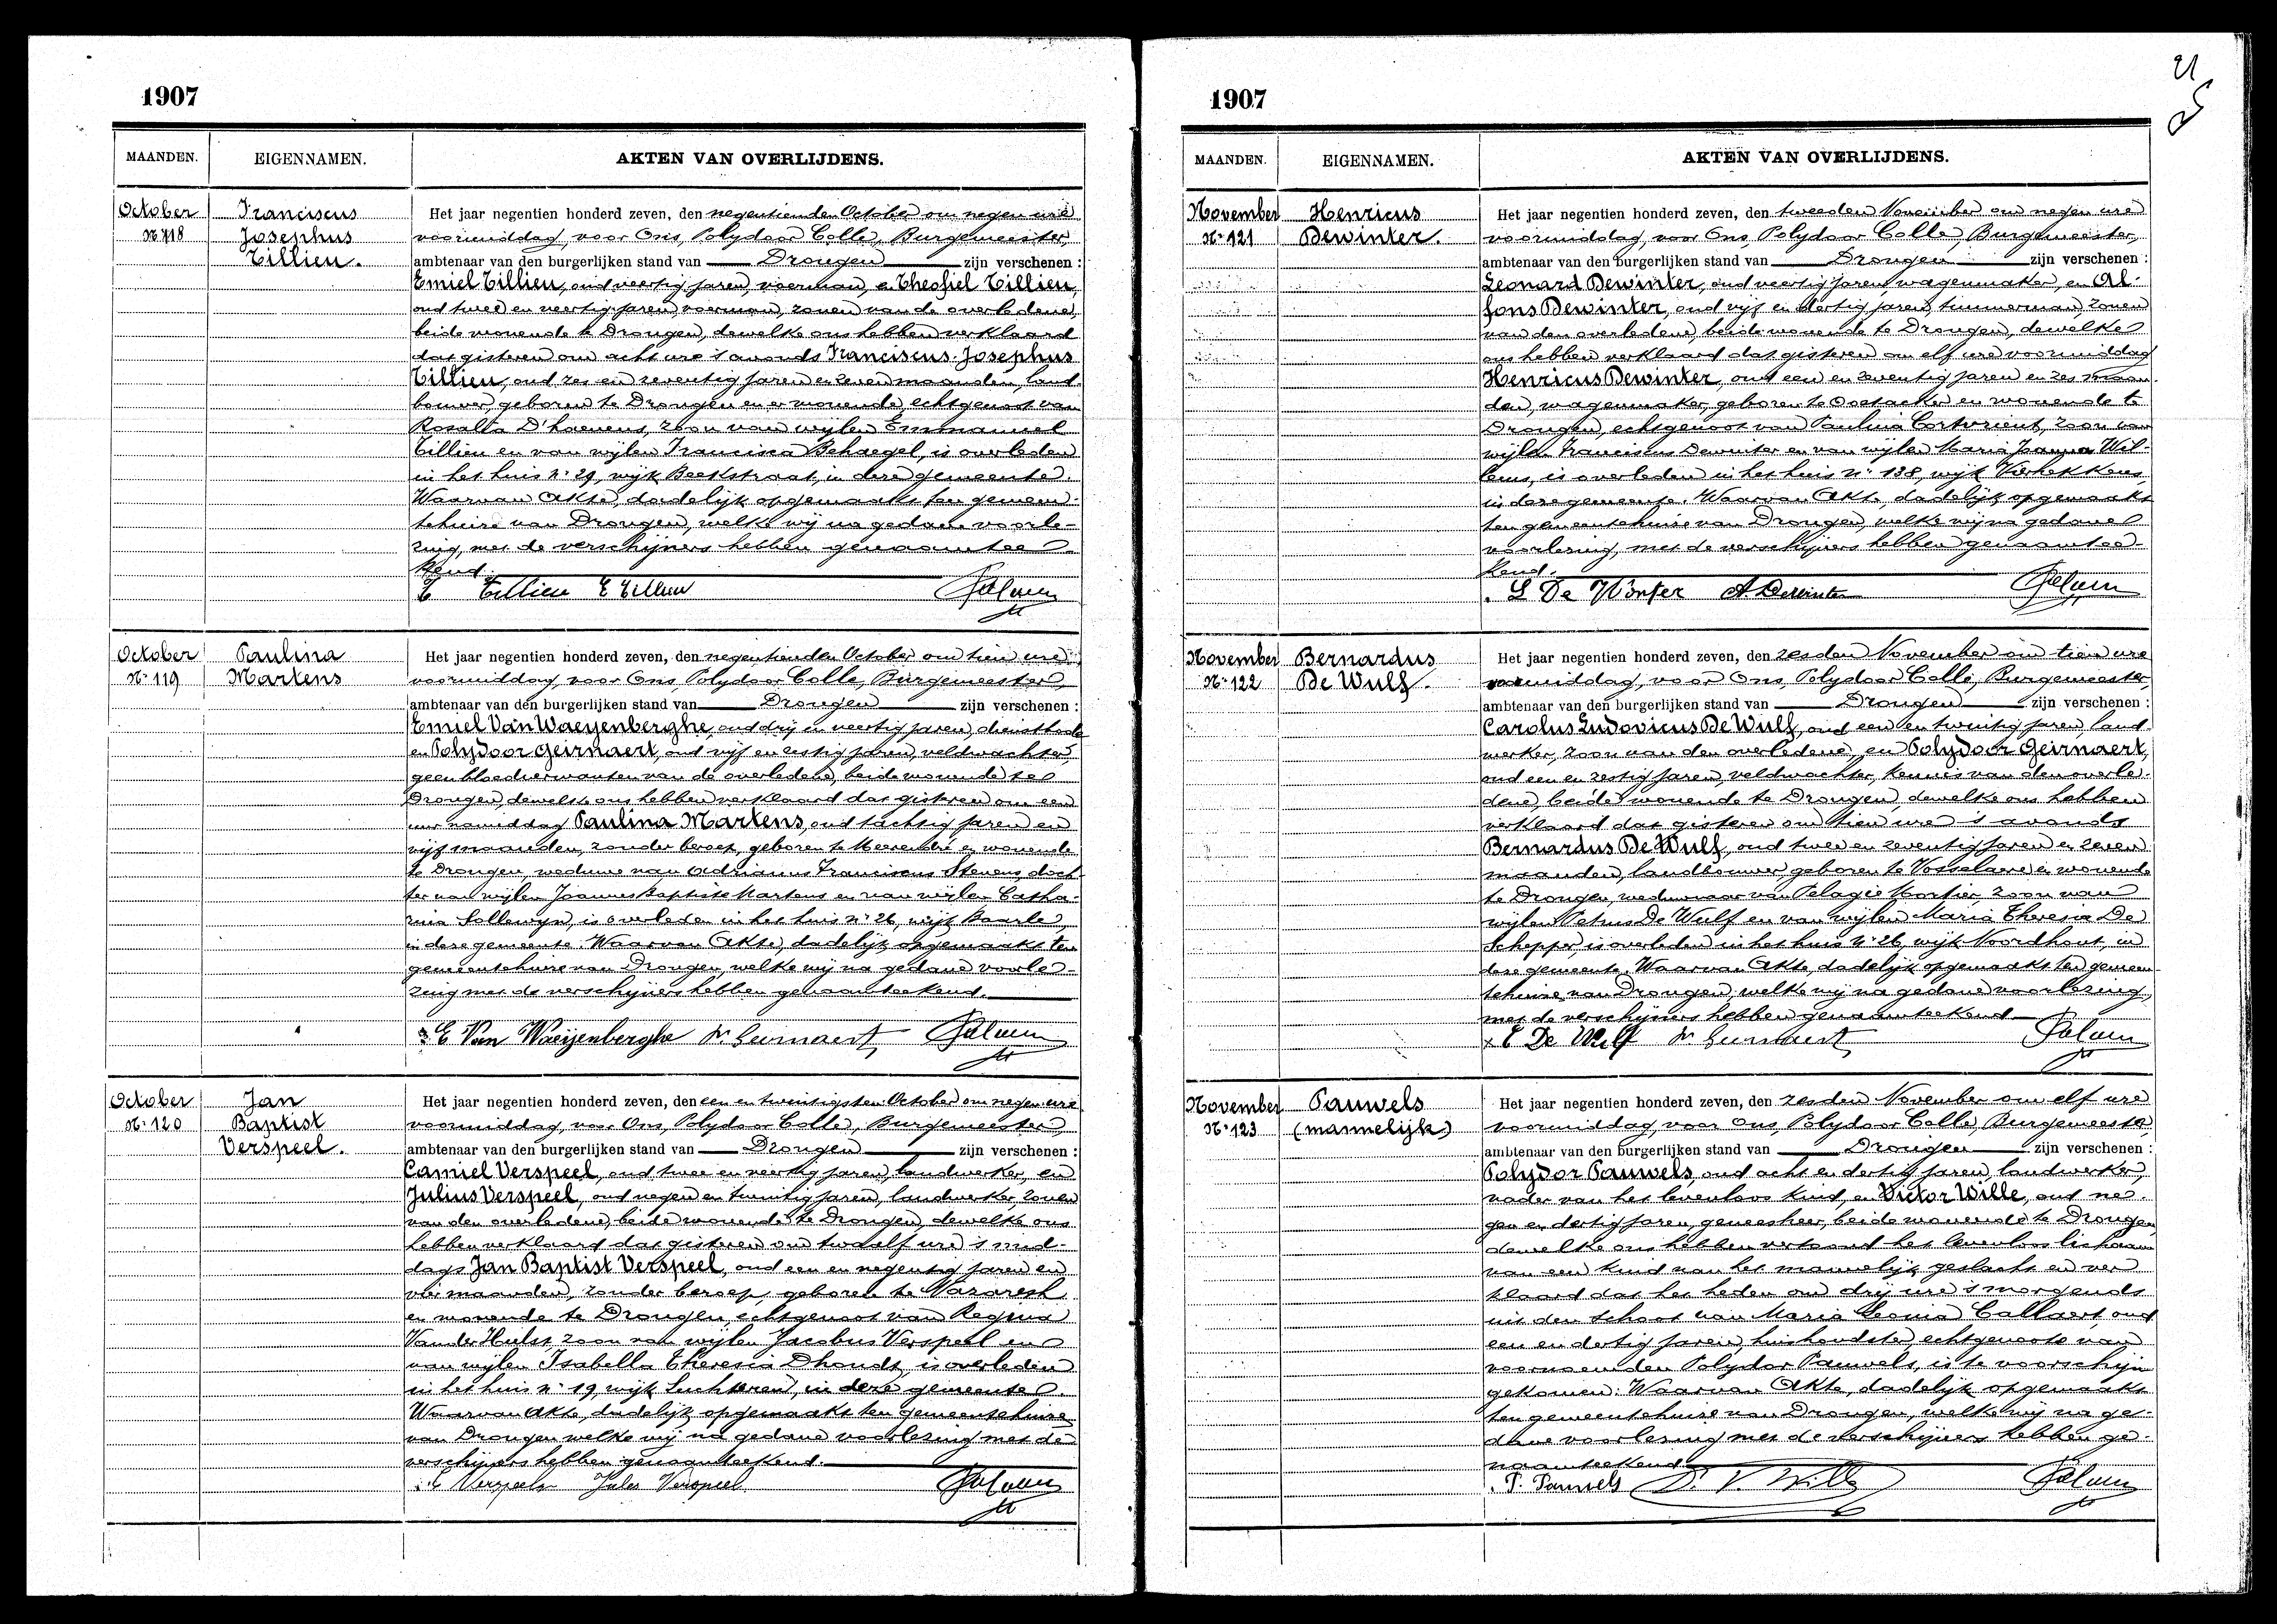 1907
MAANDEN. EIGENNAMEN. AKTEN VAN OVERLIJDENS.
October
Nr 118
Franciscus
Josephus
Tillien.
Het jaar negentien honderd zeven, den negentienden October om negen ure
voormiddag, voor Ons, Polydoor Colle, Burgemeester,
ambtenaar van den burgerlijken stand van Drongen zijn verschenen :
Emiel Tillien, oud veertig jaren, voerman, en Theofiel Tillien,
oud twee en veertig jaren voerman, zonen van de overledene,
beide wonende te Drongen, dewelke ons hebben verklaard
dat gisteren om acht ure 's avonds Franciscus Josephus
Tillien, oud zes en zeventig jaren en zeven maanden, land-
bouwer, geboren te Drongen en er wonende, echtgenoot van
Rosalia D'haenens, zoon van wijlen Emmanuel
Tillien en van wijlen Francisca Behaegel, is overleden
in het huis Nr 29, wijk Beekstraat, in deze gemeente.
Waarvan Akte, dadelijk opgemaakt ten gemeen-
tehuize van Drongen, welke wij na gedane voorle-
zing, met de verschijners hebben genaamtee-
kend.
E Tillien T Tillien
October
Nr 119
Paulina
Martens
Het jaar negentien honderd zeven, den negentienden October om tien ure
voormiddag, voor Ons, Polydoor Colle, Burgemeester,
ambtenaar van den burgerlijken stand van Drongen zijn verschenen :
Emiel Van Waeyenberghe, oud drij en veertig jaren, dienstbode
en Polydoor Geirnaert, oud vijf en zestig jaren, veldwachter,
geen bloedverwanten van de overledene, beide wonende te
Drongen, dewelke ons hebben verklaard dat gisteren om een
uur namiddag Paulina Martens, oud tachtig jaren en
vijf maanden, zonder beroep, geboren te Meerendré en wonende
te Drongen, weduwe van Adrianus Franciscus Stevens, doch-
ter van wijlen Joannes Baptiste Martens en van wijlen Catha-
rina Sollewyn, is overleden in het huis nr 26, wijk Baarle,
in deze gemeente. Waarvan Akte, dadelijk opgemaakt ten
gemeentehuize van Drongen, welke wij na gedane voorle-
zing met de verschijners hebben genaamteekend.
E Van Waeijenberghe Pr Geirnaert
October
Nr 120
Jan
Baptist
Verspeel.
Het jaar negentien honderd zeven, den een en twintigsten October om negen ure
voormiddag, voor Ons, Polydoor Colle, Burgemeester,
ambtenaar van den burgerlijken stand van Drongen zijn verschenen :
Camiel Verspeel, oud twee en veertig jaren, landwerker, en
Julius Verspeel, oud negen en twintig jaren, landwerker, zonen
van den overledene, beide wonende te Drongen, dewelke ons
hebben verklaard dat gisteren om twaalf ure 's mid-
dags Jan Baptist Verspeel, oud een en negentig jaren en
vier maanden, zonder beroep, geboren te Nazareth
en wonende te Drongen, echtgenoot van Regina
Van der Hulst, zoon van wijlen Jacobus Verspeel en
van wijlen Isabella Theresia Dhondt, is overleden
in het huis nr 19, wijk Luchteren, in deze gemeente.
Waarvan Akte, dadelijk opgemaakt ten gemeentehuize
van Drongen welke wij na gedane voorlezing met de
verschijners hebben genaamteekend.
C Verspeel Jules Verspeel
1907
MAANDEN. EIGENNAMEN. AKTEN VAN OVERLIJDENS.
November
Nr 121
Henricus
Dewinter.
Het jaar negentien honderd zeven, den tweeden November om negen ure
voormiddag, voor Ons, Polydoor Colle, Burgemeester,
ambtenaar van den burgerlijken stand van Drongen zijn verschenen :
Leonard Dewinter, oud veertig jaren, wagenmaker, en Al-
fons Dewinter, oud vijf en dertig jaren, timmerman, zonen
van den overledene, beide wonende te Drongen, dewelke
ons hebben verklaard dat gisteren om elf ure voormiddag
Henricus Dewinter, oud een en zeventig jaren en zes maan-
den, wagenmaker, geboren te Oostacker en wonende te
Drongen, echtgenoot van Paulina Cortvrient, zoon van
wijlen Franciscus Dewinter en van wijlen Maria Joanna Wil-
lems, is overleden in het huis nr 138, wijk Vierhekkens,
in deze gemeente. Waarvan Akte, dadelijk opgemaakt
ten gemeentehuize van Drongen, welke wij na gedane
voorlezing, met de verschijners hebben genaamtee-
kend.
L De Winter A Dewinter
November
Nr 122
Bernardus
De Wulf.
Het jaar negentien honderd zeven, den zesden November om tien ure
voormiddag, voor Ons, Polydoor Colle, Burgemeester,
ambtenaar van den burgerlijken stand van Drongen zijn verschenen :
Carolus Ludovicus De Wulf, oud een en twintig jaren, land-
werker, zoon van den overledene, en Polydoor Geirnaert,
oud een en zestig jaren, veldwachter, kennis van den overle-
dene, beide wonende te Drongen, dewelke ons hebben
verklaard dat gisteren om tien ure 's avonds
Bernardus De Wulf, oud twee en zeventig jaren en zeven
maanden, landbouwer, geboren te Vosselaere en wonende
te Drongen, weduwnaar van Pelagie Mortier, zoon van
wijlen Petrus De Wulf en van wijlen Maria Theresia De
Schepper, is overleden in het huis nr 26, wijk Noordhout, in
deze gemeente. Waarvan Akte, dadelijk opgemaakt ten gemeen-
tehuize van Drongen, welke wij na gedane voorlezing,
met de verschijners hebben genaamteekend
C De Wulf Pr Geirnaert
November
Nr 123
Pauwels
(mannelijk)
Het jaar negentien honderd zeven, den zesden November om elf ure
voormiddag, voor Ons, Polydoor Colle, Burgemeester,
ambtenaar van den burgerlijken stand van Drongen zijn verschenen :
Polydor Pauwels, oud acht en dertig jaren, landwerker,
vader van het levenloos kind, en Victor Wille, oud ne-
gen en dertig jaren, geneesheer, beide wonende te Drongen,
dewelke ons hebben vertoond het levenloos lichaam
van een kind van het mannelijk geslacht en ver-
klaard dat het heden om drij ure 's morgends
uit den schoot van Maria Leonia Callaert, oud
een en dertig jaren, huishoudster, echtgenoote van
voornoemden Polydor Pauwels, is te voorschijn
gekomen. Waarvan Akte, dadelijk opgemaakt
ten gemeentehuize van Drongen, welke wij na ge-
dane voorlezing met de verschijners hebben ge-
naamteekend
P. Pauwels Dr. V. Wille